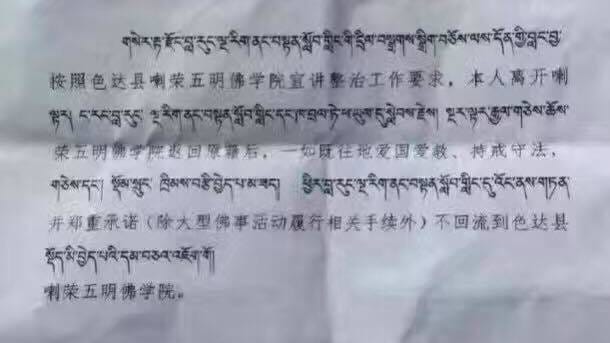 གསེར་རྟ་རྫོང་བླ་རུང་ལྔ་རིག་ནང་བསྟན་སློབ་གླིང་གི་དྲིལ་བསྒྲགས་སྒྲིག་བཅོས་ལས་དོན་གྱི་བླང་བྱ་
按照色达县喇荣五明佛学院宣讲整治工作要求，本人离开喇
ལྟར། ང་རང་བླ་རུང་ ལྔ་རིག་ནང་བསྟན་སློབ་གླིང་དང་ཁ་བྲལ་ཏེ་ཕ་ཡུལ་དུ་སླེབས་རྗེས། སྔར་ལྟར་རྒྱལ་གཅེས་ཆོས་
荣五明佛学院返回原籍后，一如既往地爱国爱教、持戒守法，
གཅེས་དང་། སྡོམ་སྲུང་ ཁྲིམས་བརྩི་བྱེད་པ་མ་ཟད། ཕྱིར་བླ་རུང་ལྔ་རིག་ནང་བསྟན་སློབ་གླིང་དུ་འོང་ནས་གཏན་
并郑重承诺（除大型佛事活动履行相关手续外）不回流到色达县
སྡོད་མི་བྱེད་པའི་དམ་བཅའ་འཇོག་གོ།
喇荣五明佛学院。